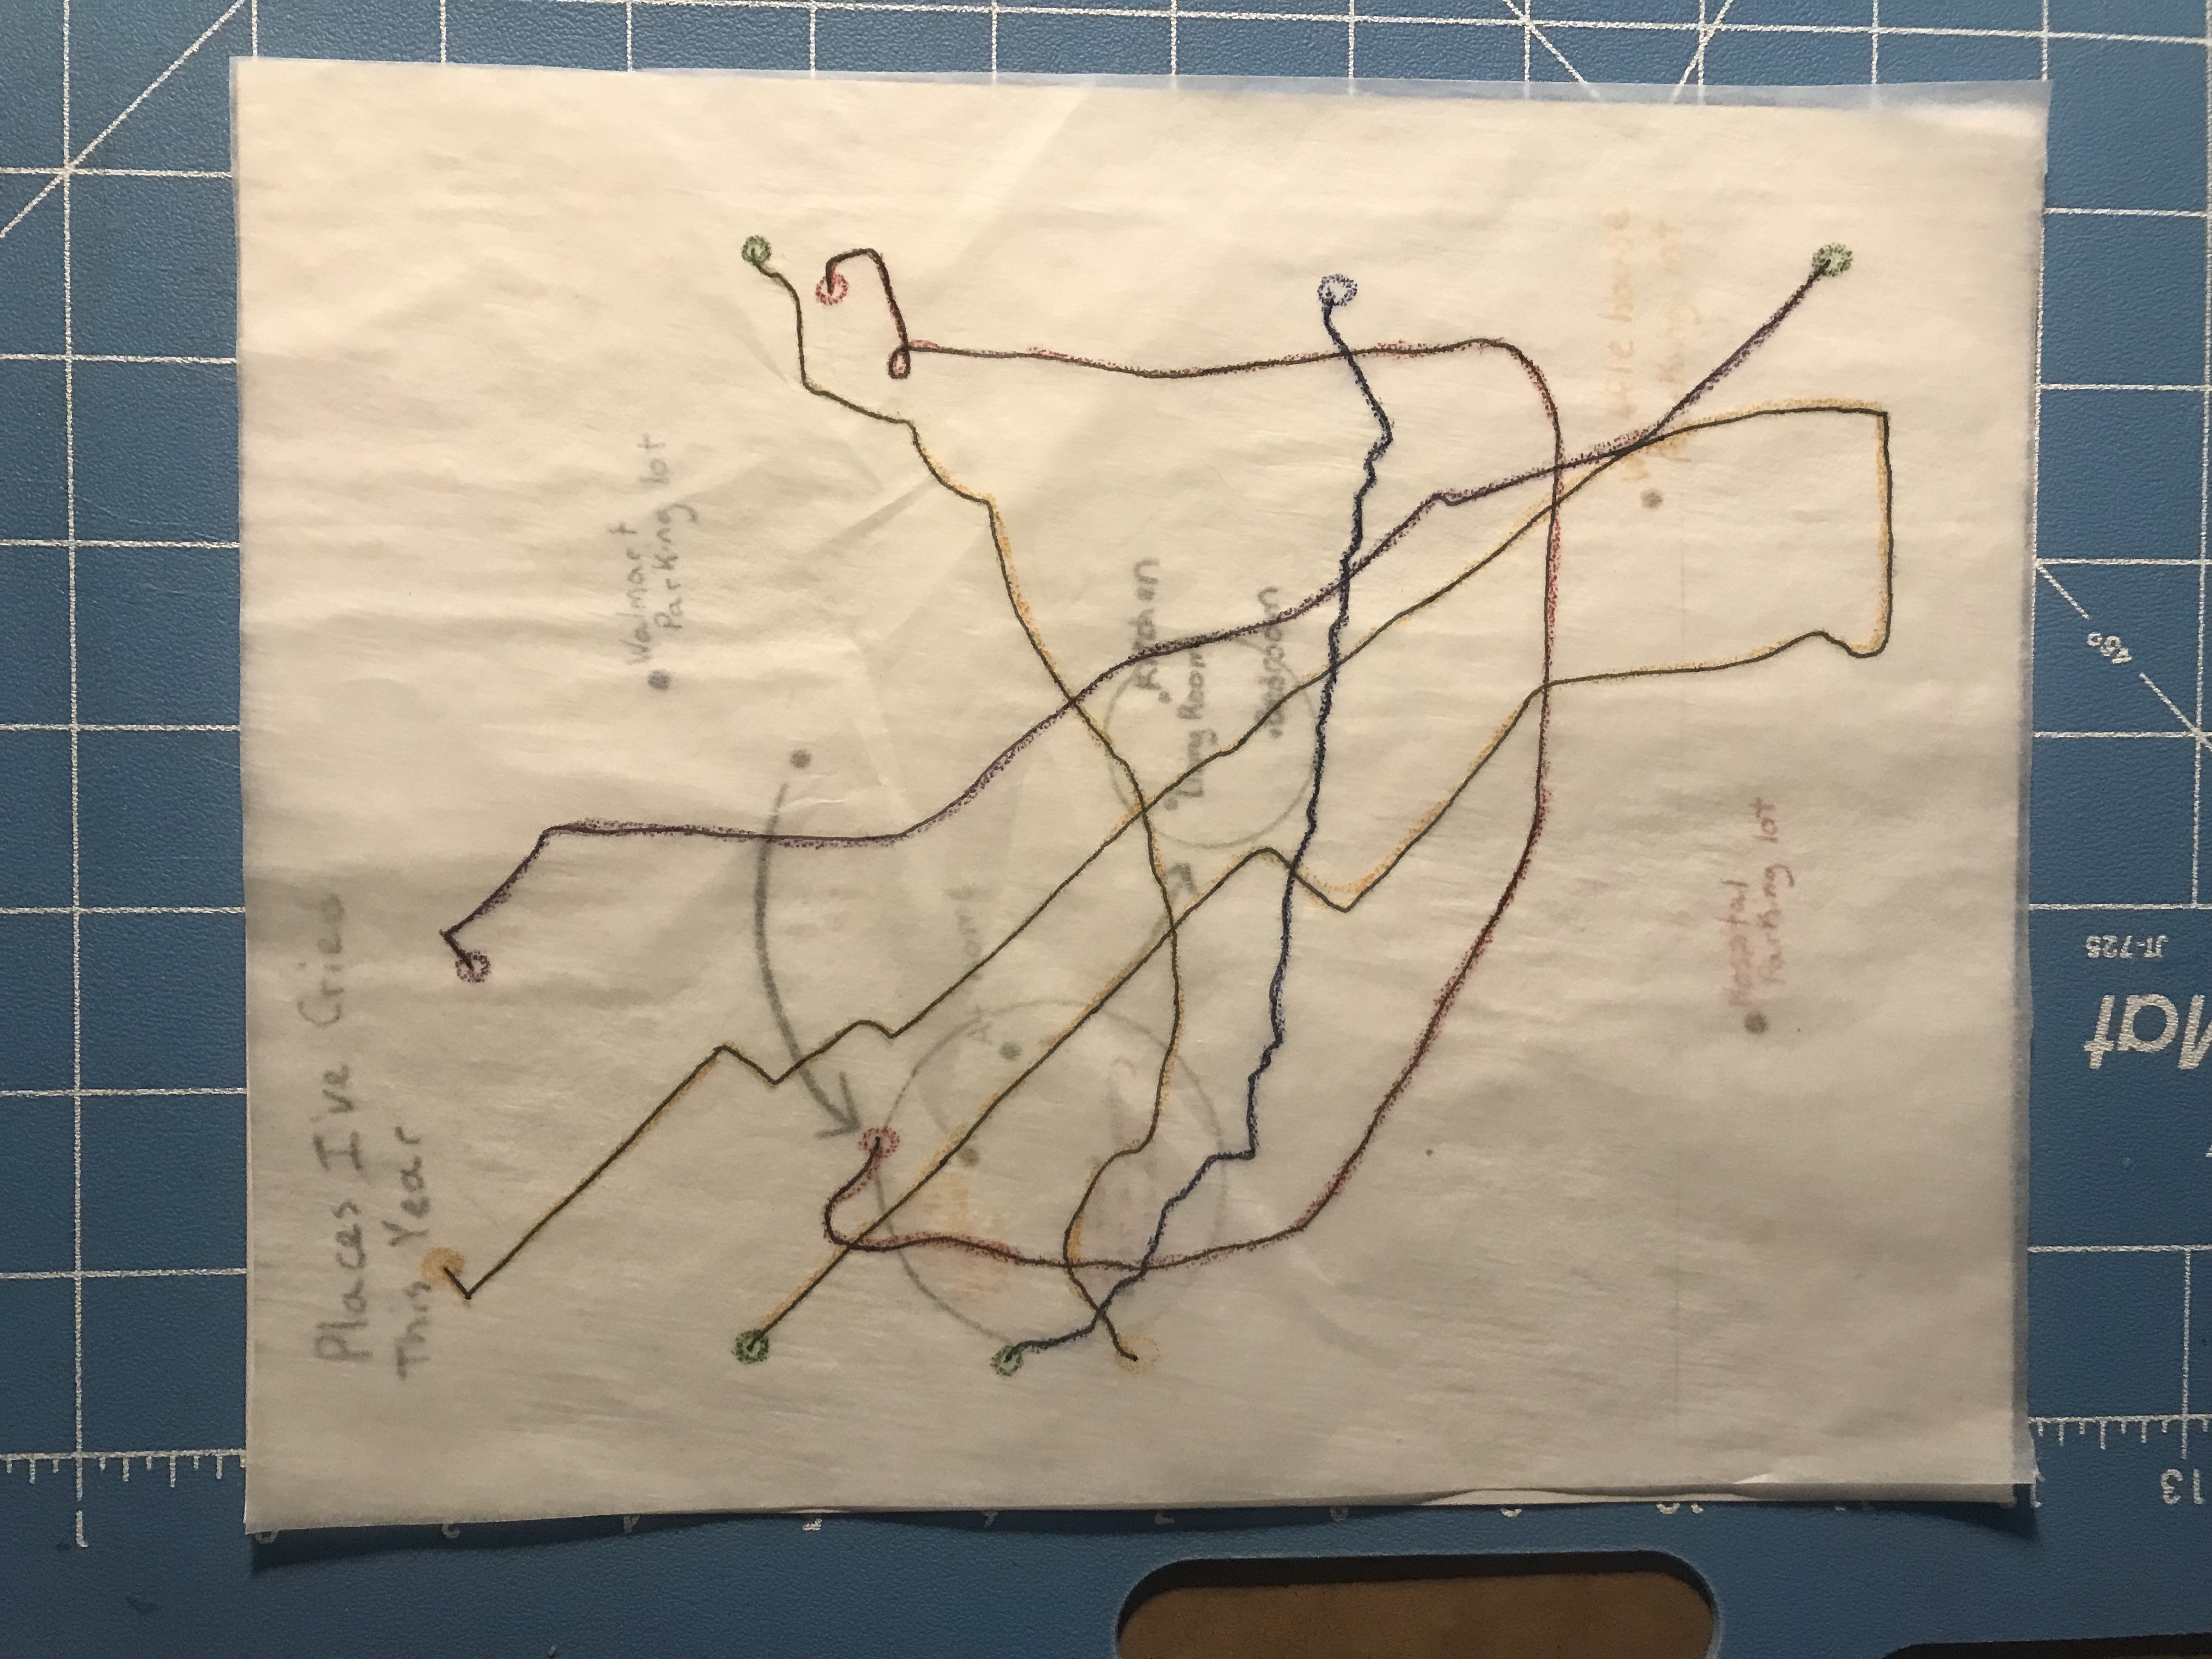 1
Places I've Cried
This Year
2
Walmart
Parking lot
4
5
6
At home
7
Kitchen
Living Room
Bedroom
8
9
Waffle house
Parking lot
10
Hospital
Parking lot
Mat
JT-725
45°
13